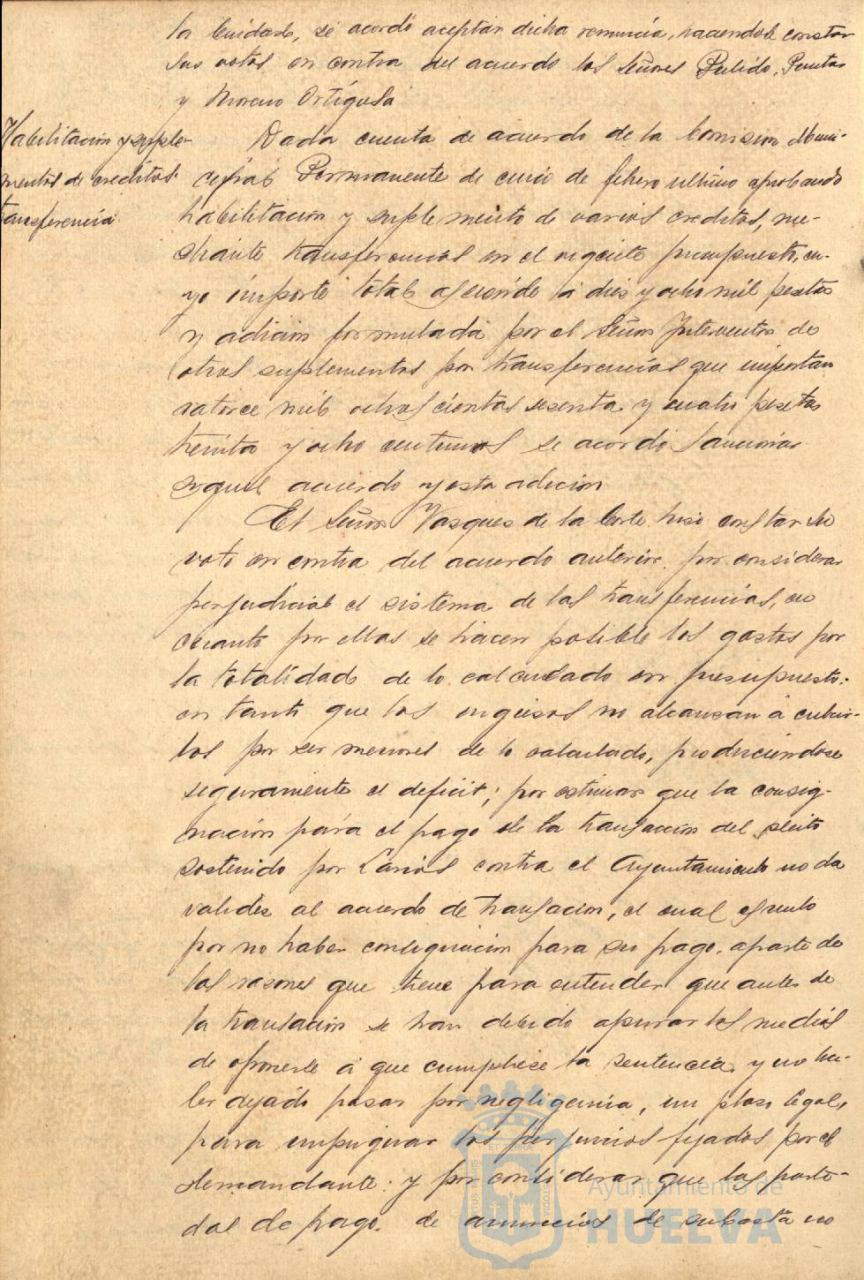 la Ciudad, se acordó aceptar dicha renuncia, haciendose constar
sus votos en contra del acuerdo los Señores Pulido,
y Moreno Ortigosa
Habilitacion y suple-
mentos de creditos
transferencia
Dada cuenta de acuerdo de la Comision Muni-
cipal Permanente de cinco de febrero ultimo aprobando
habilitacion y suplemento de varios creditos, me-
diante transferencias en el vigente presupuesto, cu-
yo importe total asciende a dies y ocho mil pesetas
y adicion formulada por el Señor Interventor de
otros suplementos por transferencias que importan
catorce mil ochocientas sesenta y cuatro pesetas
treinta y ocho centimos se acordó sancionar
aquel acuerdo y esta adicion
El Señor Vasques de la Corte hiso constar su
voto en contra del acuerdo anterior, por considerar
perjudicial el sistema de las transferencias, en
cuanto por ellas se hacen posible los gastos por
la totalidad de lo calculado en presupuesto:
en tanto que los ingresos no alcansan a cubrir-
los por ser menores de lo calculado, produciendose
seguramente el deficit; por estimar que la consig-
nacion para el pago de la transaccion del pleito
sostenido por Larios contra el Ayuntamiento no da
valides al acuerdo de transacion, el cual es nulo
por no haber consignacion para su pago, aparte de
las rasones que tiene para entender que antes de
la transacion se han debido apurar los medios
de oponerse a que cumpliese la sentencia y no ha-
ber dejado pasar por negligencia, un plaso legal,
para impugnar los perjuicios fijados por el
demandante: y por considerar que las
de pago de anuncios de subasta no
Ayuntamiento de
HUELVA